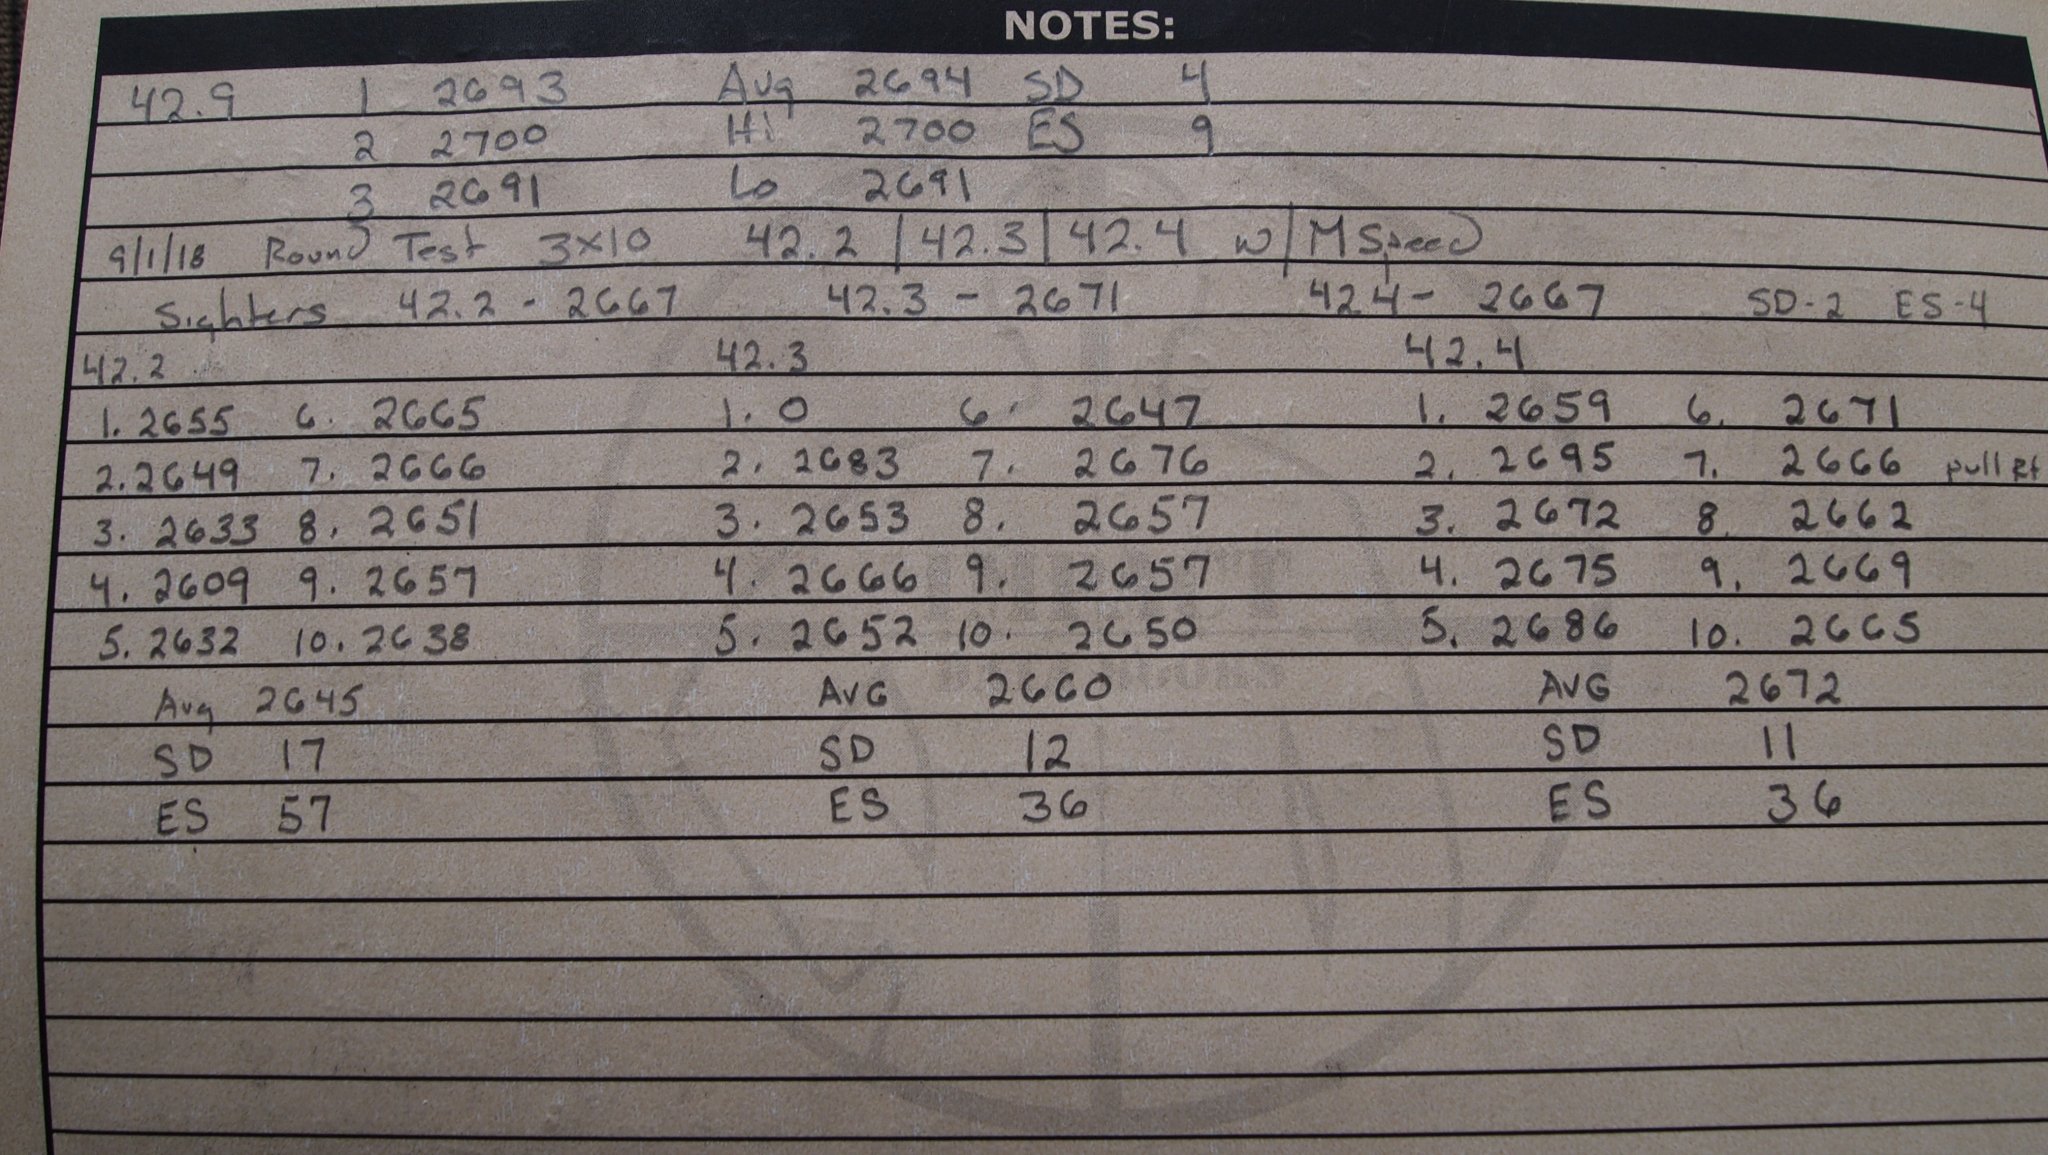 NOTES:
42.9 1 2693 Avg 2694 SD 4
2 2700 Hi 2700 ES 9
3 2691 Lo 2691
9/1/18 Round Test 3x10 42.2 | 42.3 | 42.4 w/ M Speed
Sighters 42.2 - 2667 42.3 - 2671 42.4 - 2667 SD-2 ES-4
42.2 42.3 42.4
1. 2655 6. 2665 1. 0 6. 2647 1. 2659 6. 2671
2. 2649 7. 2666 2. 2683 7. 2676 2. 2695 7. 2666 pull Rt
3. 2633 8. 2651 3. 2653 8. 2657 3. 2672 8. 2662
4. 2609 9. 2657 4. 2666 9. 2657 4. 2675 9. 2669
5. 2632 10. 2638 5. 2652 10. 2650 5. 2686 10. 2665
Avg 2645 AVG 2660 AVG 2672
SD 17 SD 12 SD 11
ES 57 ES 36 ES 36